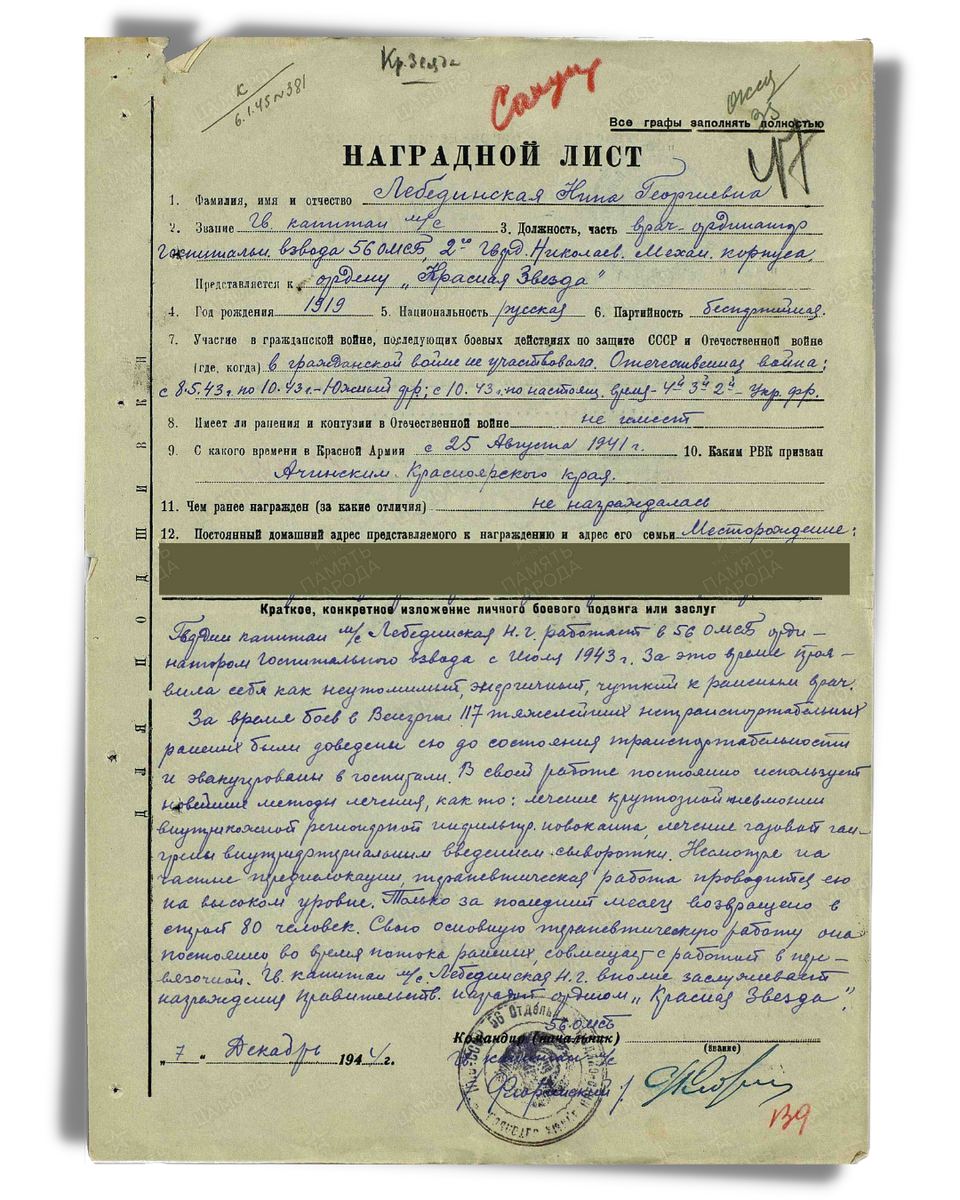 Кр. Звезда
К
6.1.45 № 381
Все графы заполнять полностью
НАГРАДНОЙ ЛИСТ
1. Фамилия, имя и отчество Лебединская Нина Георгиевна
2. Звание Гв. капитан м/с 3. Должность, часть врач-ординатор
Госпитальн. взвода 56 ОМСБ, 2го Гвард. Николаев. Механ. корпуса.
Представляется к ордену „Красная Звезда"
4. Год рождения 1919 5. Национальность русская 6. Партийность беспартийная.
7. Участие в гражданской войне, последующих боевых действиях по защите СССР и Отечественной войне
(где, когда) в гражданской войне не участвовала. Отечественная война:
с 8.5.43 г. по 10.43 г. - Южный фр; с 10.43 г. по настоящ. время - 4й 3й 2й - Укр. фр.
8. Имеет ли ранения и контузии в Отечественной войне не имеет
9. С какого времени в Красной Армии с 25 Августа 1941 г. 10. Каким РВК призван
Ачинским Красноярского края.
11. Чем ранее награжден (за какие отличия) не награждалась
12. Постоянный домашний адрес представляемого к награждению и адрес его семьи Месторождение:
ДЛЯ ПОДШИВКИ
Краткое, конкретное изложение личного боевого подвига или заслуг
Гвардии капитан м/с Лебединская Н.Г. работает в 56 ОМСБ орди-
натором Госпитального взвода с Июля 1943 г. За это время проя-
вила себя как неутомимый, энергичный, чуткий к раненым врач.
За время боев в Венгрии 117 тяжелейших нетранспортабельных
раненых были доведены ею до состояния транспортабельности
и эвакуированы в госпитали. В своей работе постоянно использует
новейшие методы лечения, как то: лечение крупозной пневмонии
внутрикожной регионарной инфильтр. новокаина, лечение газовой ган-
грены внутриартериальным введением сыворотки. Несмотря на
частые передислокации, терапевтическая работа проводится ею
на высоком уровне. Только за последний месяц возвращено в
строй 80 человек. Свою основную терапевтическую работу она
постоянно во время потока раненых, совмещает с работой в пере-
вязочной. Гв. капитан м/с Лебединская Н.Г. вполне заслуживает
награждения правительств. наградой орденом „Красная Звезда".
56 ОМСБ
Командир (начальник)
(звание)
„7" Декабрь 1944 г.
Гв. капитан м/с
139